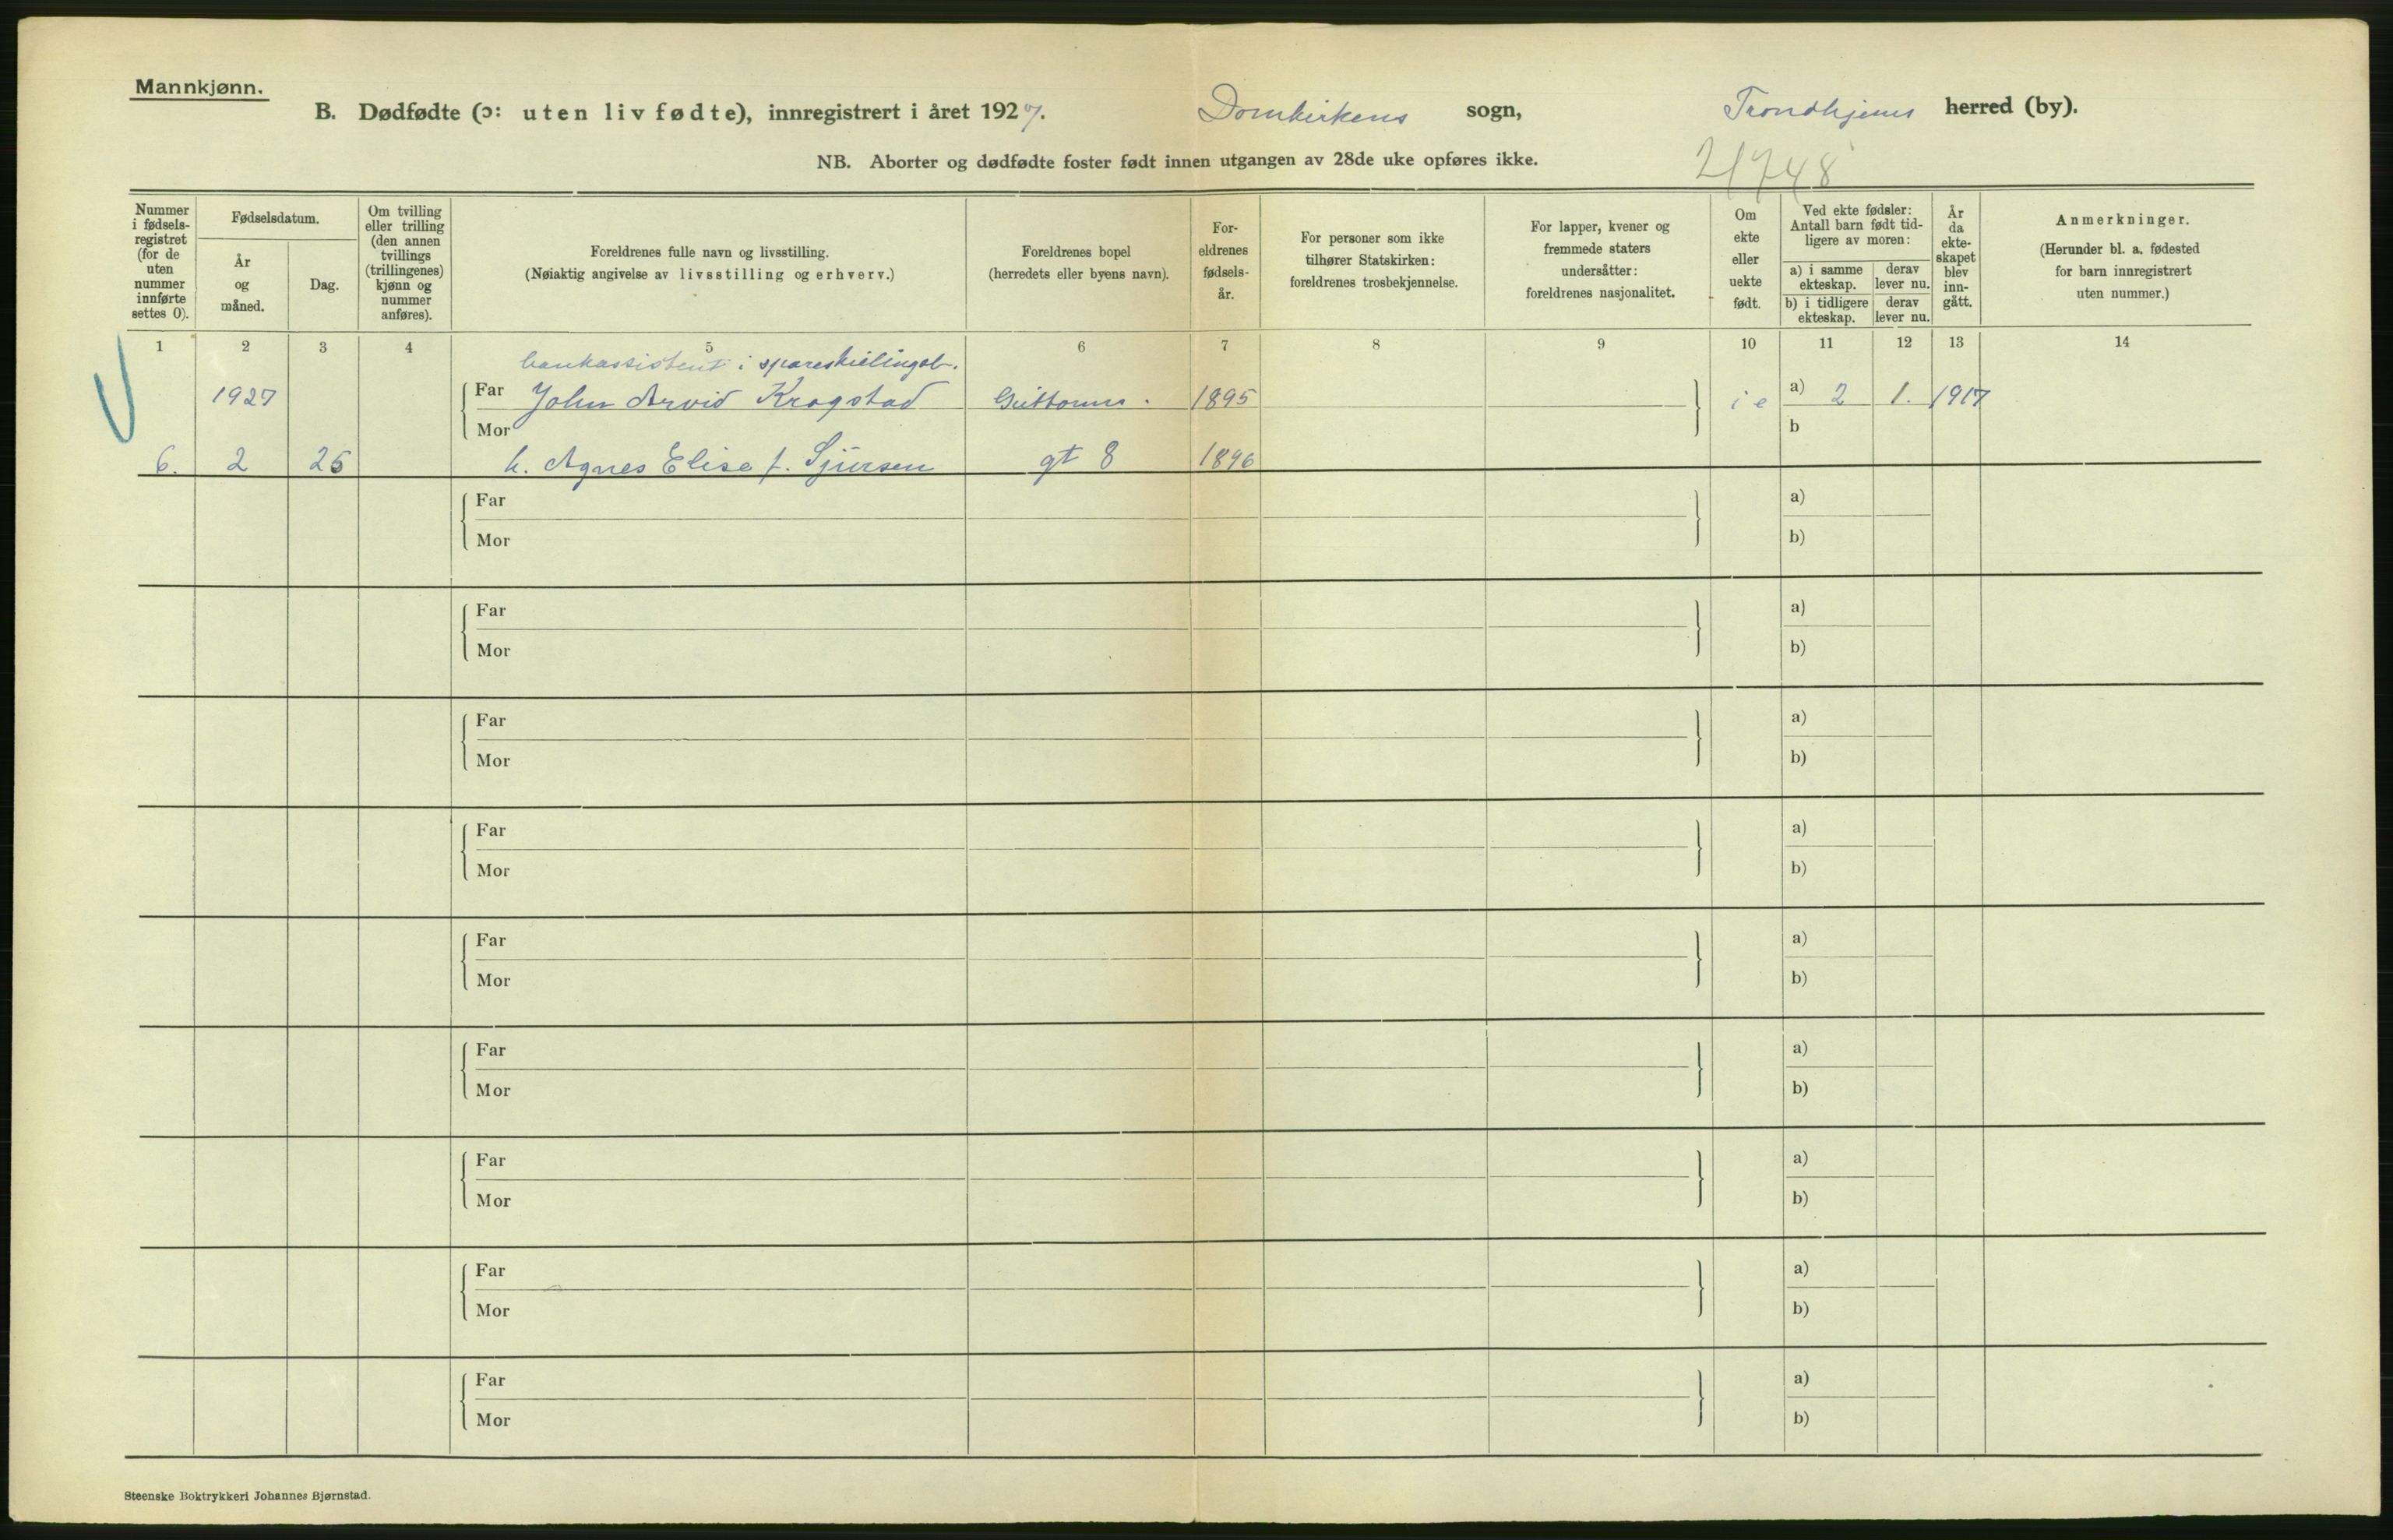 Mannkjønn.
B. Dødfødte (ɔ: uten liv fødte), innregistrert i året 1927. Domkirkens sogn, Trondhjems herred (by).
NB. Aborter og dødfødte foster født innen utgangen av 28de uke opføres ikke.
21748
Nummer i fødsels-registret (for de uten nummer innførte settes 0).
Fødselsdatum.
År og måned.
Dag.
Om tvilling eller trilling (den annen tvillings (trillingenes) kjønn og nummer anføres).
Foreldrenes fulle navn og livsstilling.
(Nøiaktig angivelse av livsstilling og erhverv.)
Foreldrenes bopel
(herredets eller byens navn).
For-eldrenes fødsels-år.
For personer som ikke tilhører Statskirken: foreldrenes trosbekjennelse.
For lapper, kvener og fremmede staters undersåtter: foreldrenes nasjonalitet.
Om ekte eller uekte født.
Ved ekte fødsler: Antall barn født tid-ligere av moren:
a) i samme ekteskap.
derav lever nu.
b) i tidligere ekteskap.
derav lever nu.
År da ekte-skapet blev inn-gått.
Anmerkninger.
(Herunder bl. a. fødested for barn innregistrert uten nummer.)
1 2 3 4 5 6 7 8 9 10 11 12 13 14
bankassistent i spareskillingsb.
1927 Far John Arvid Krogstad 1895 i e a) 2 1. 1917
Mor b
6. 2 25 h. Agnes Elise f. Sjursen gt 8 1896
Far a)
Mor b)
Far a)
Mor b)
Far a)
Mor b)
Far a)
Mor b)
Far a)
Mor b)
Far a)
Mor b)
Far a)
Mor b)
Far a)
Mor b)
Far a)
Mor b)
Steenske Boktrykkeri Johannes Bjørnstad.